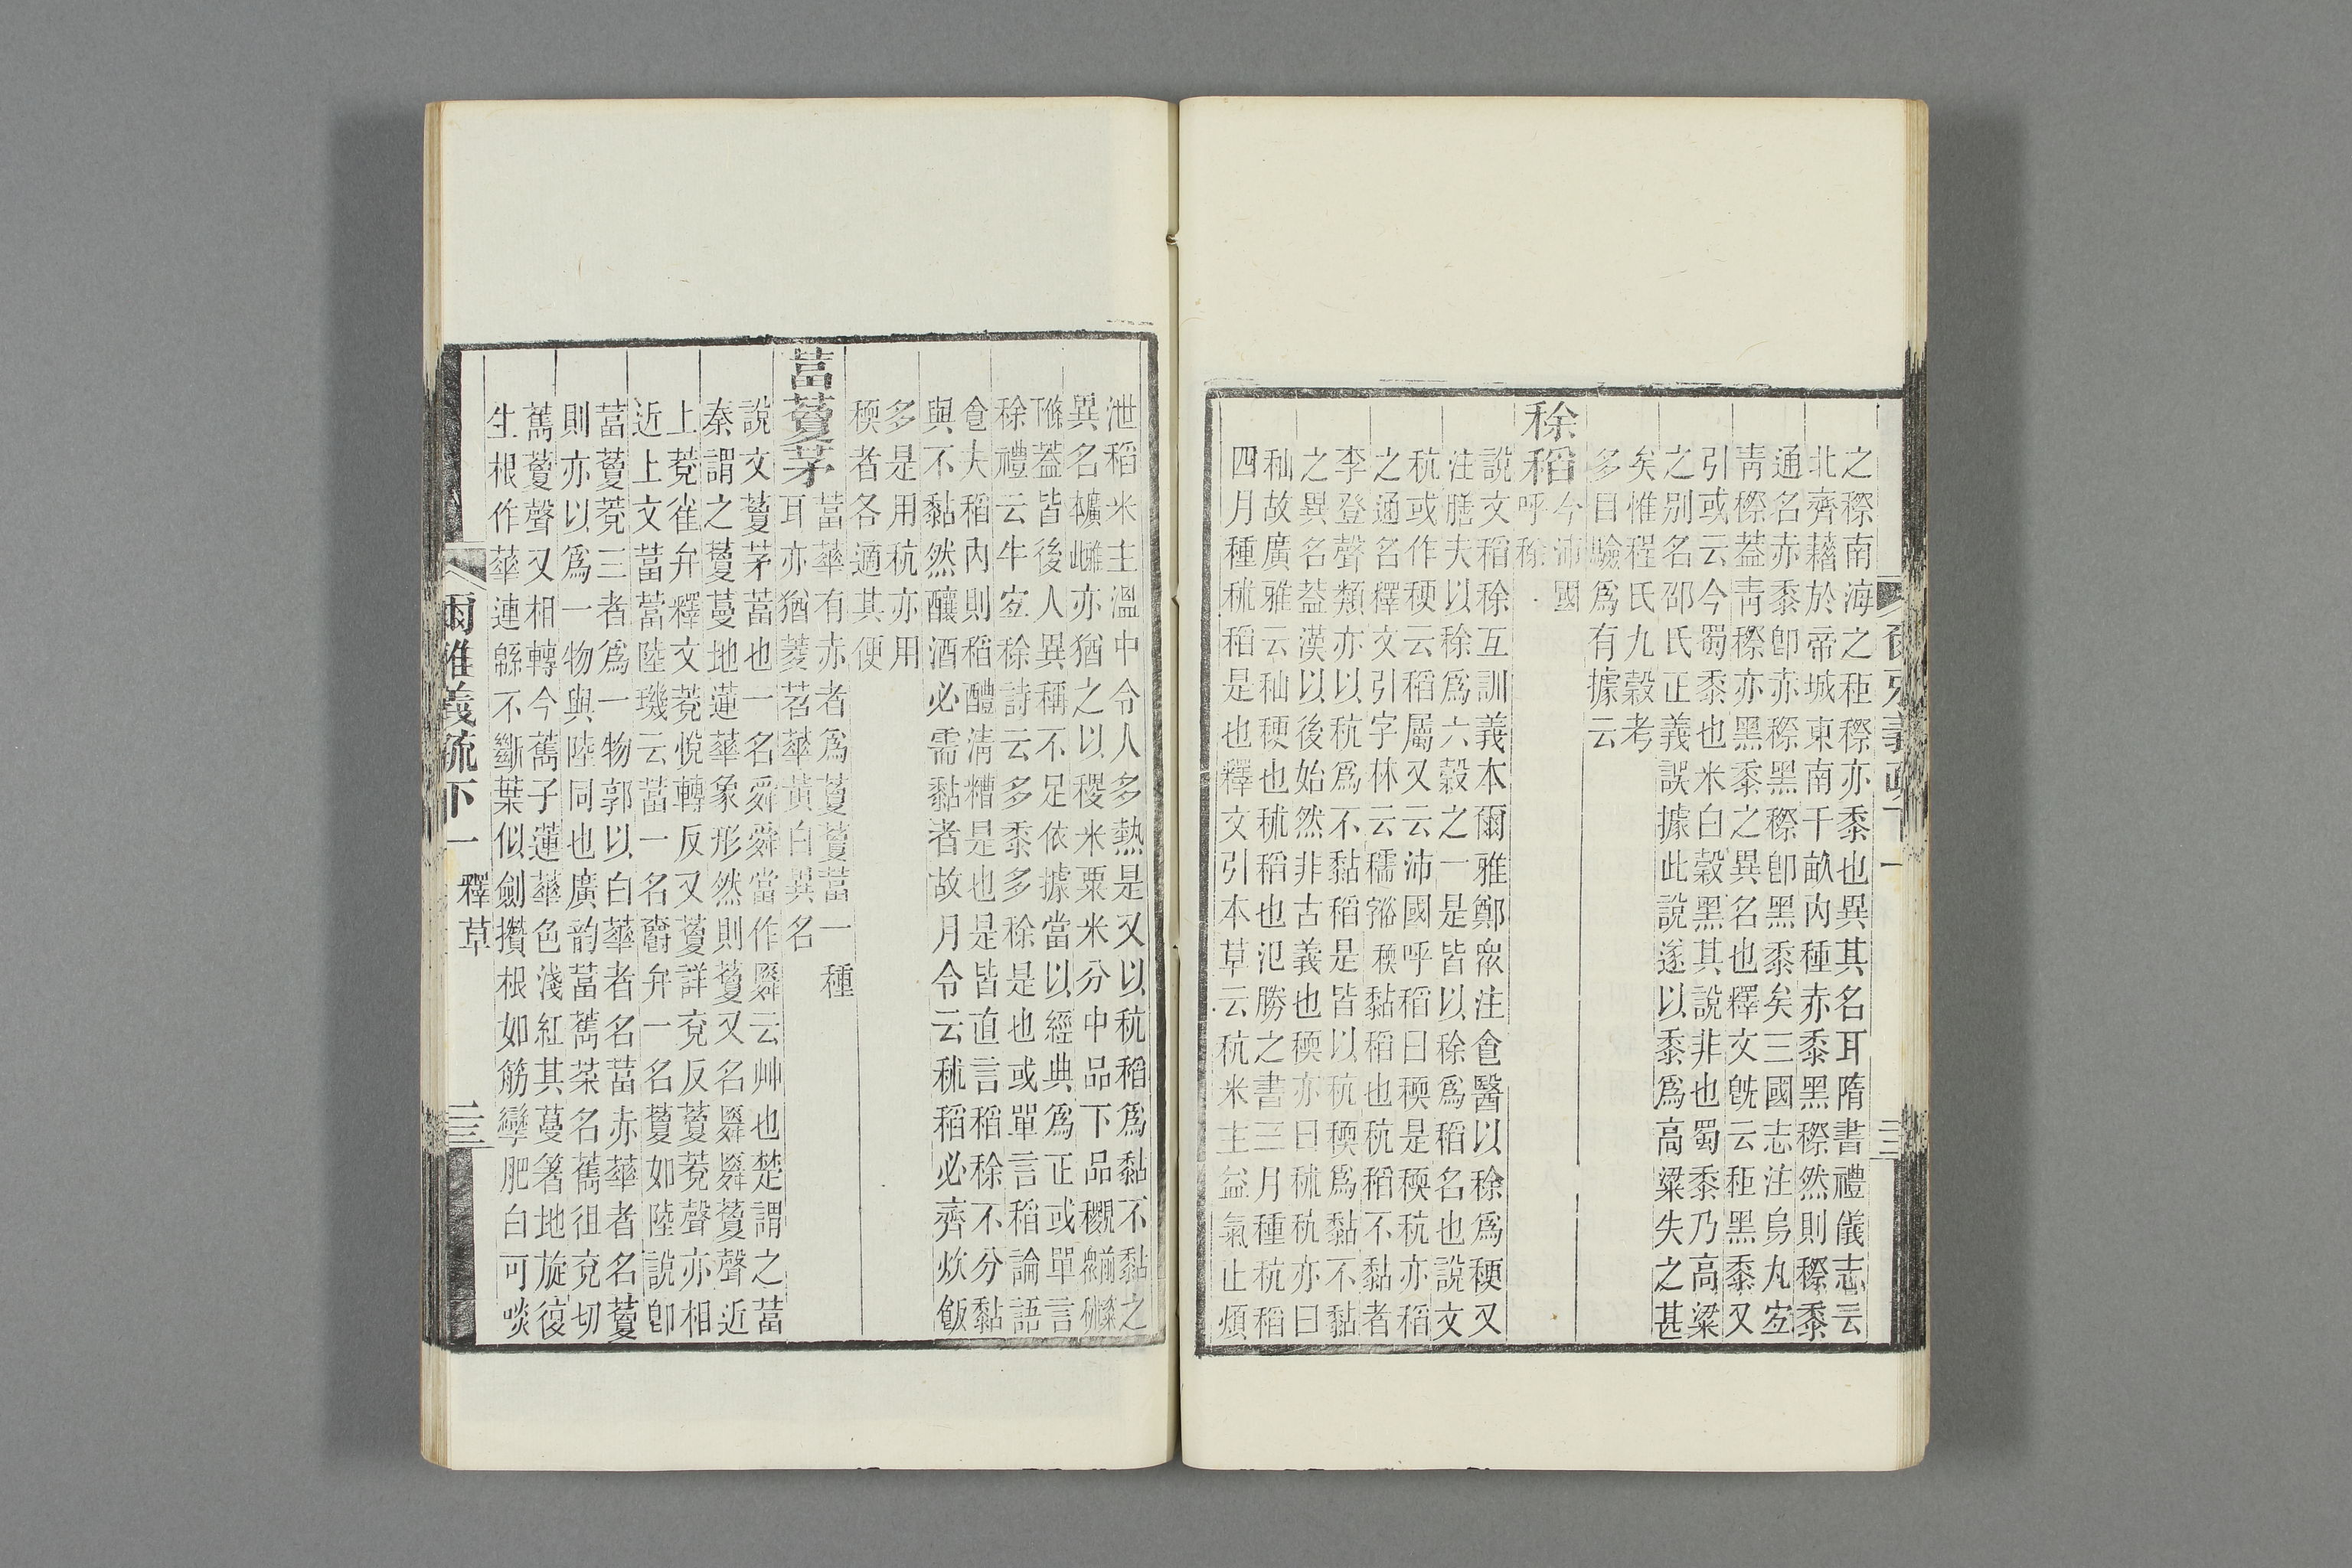 之穄南海之秬穄亦黍也異其名耳隋書禮儀志云
北齊藉於帝城東南千畝內種赤黍黑穄然則穄黍
通名赤黍卽赤穄黑穄卽黑黍矣三國志注烏丸宐
靑穄葢靑穄亦黑黍之異名也釋文旣云秬黑黍又
引或云今蜀黍也米白穀黑其說非也蜀黍乃高粱
之別名邵氏正義誤據此說遂以黍爲高粱失之甚
矣惟程氏九穀考
多目驗爲有據云
稌稻
今沛國
呼稌
說文稻稌互訓義本爾雅鄭眾注食醫以稌爲稉又
注膳夫以稌爲六穀之一是皆以稌爲稻名也說文
秔或作稉云稻屬又云沛國呼稻曰稬是稬秔亦稻
之通名釋文引字林云穤稬黏稻也秔稻不黏者
李登聲類亦以秔爲不黏稻是皆以秔稬爲黏不黏
之異名葢漢以後始然非古義也稬亦曰秫秔亦曰
秈故廣雅云秈稉也秫稻也氾勝之書三月種秔稻
四月種秫稻是也釋文引本草云秔米主益氣止煩
泄稻米主溫中令人多熱是又以秔稻爲黏不黏之
異名亦猶之以稷米粟米分中品下品
葢皆後人異稱不足依據當以經典爲正或單言
稌禮云牛宐稌詩云多黍多稌是也或單言稻論語
食夫稻內則稻醴淸糟是也是皆直言稻稌不分黏
與不黏然釀酒必需黏者故月令云秫稻必齊炊飯
多是用秔亦用
稬者各適其便
葍藑茅
葍華有赤者爲藑藑葍一種
耳亦猶菱苕華黃白異名
說文藑茅葍也一名舜舜當作䑞云艸也楚謂之葍
秦謂之藑蔓地蓮華象形然則藑又名䑞䑞藑聲近
上菟雀弁釋文菟悅轉反又藑詳兗反藑菟聲亦相
近上文葍䔰陸璣云葍一名爵弁一名藑如陸說卽
葍藑菟三者爲一物郭以白華者名葍赤華者名藑
則亦以爲一物與陸同也廣韵葍䔰菜名䔰徂兗切
䔰藑聲又相轉今䔰子蓮華色淺紅其蔓箸地旋復
生根作華連緜不斷葉似劍攢根如筋孿肥白可啖
爾雅義疏下一 釋草
三